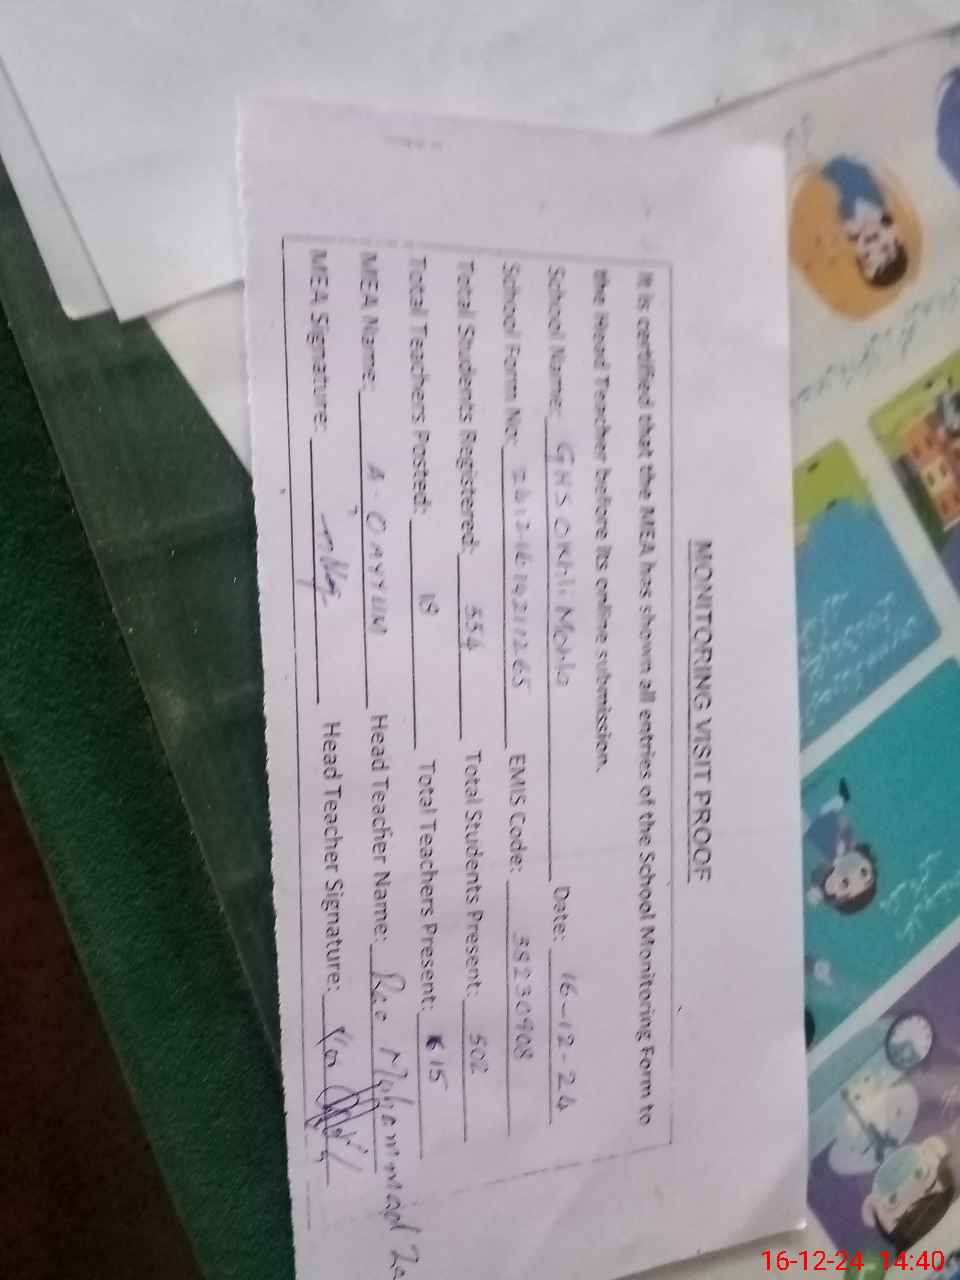 MONITORING VISIT PROOF
It is certified that the MEA has shown all entries of the School Monitoring Form to
the Head Teacher before its online submission.
School Name: GHS Date: 16-12-24
School Form No: EMIS Code:
Total Students Registered: 554 Total Students Present: 502
Total Teachers Posted: 18 Total Teachers Present: 15
MEA Name: A-QAYYUM Head Teacher Name: Rao Muhammad
MEA Signature: Head Teacher Signature:
16-12-24 14:40